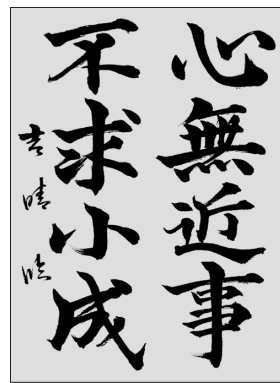 心無近事
不求小成
吉晴臨